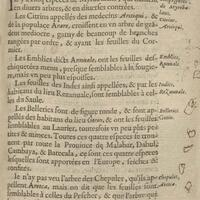 en diuers arbres, & en diuerses contrees.
Les Citrins appellés des medecins Arasqui,
la populace Arare, croissent en vn arbre de grãdeur mediocre, garny de beaucoup de branches
rangées par ordre, & ayant les feuilles du Cormier.
Les Emblics dicts Annuale, ont les feuilles
dechiquetées menu, presque semblables à la fougiere,
mais vn peu plus espoisses.
Les feuilles des Indes ainsi appellées, & par les
habitans du lieu Rezannuale, sont semblables à celles
du Saule.
Les Bellerics sont de figure ronde, & sont appellés
des habitans du lieu Gotin, & ont les feuilles
semblables au Laurier, toutesfois vn peu plus petites
& minces. Toutes ces quatre especes se trouuent
par toute la Prouince de Malabar, Dabul,
Cambaya, & Batecala, & ces quatre especes
sont apportées en l'Europe, seiches &
confites.
Ie n'ay pas veu l'arbre des Chepules, qu'ils appellent
Areca, mais on dit que les feuilles sont
semblables à celles du Pescher, & que l'arbre
Citrins,
Arasqui.
Emblics,
Annuale.
Indes,
Rezannuale.
Bellerics
Gotin.
Chepules,
Areca.